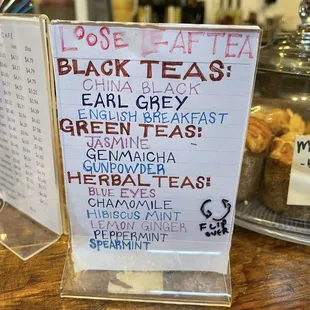 LOOSE LEAF TEA
BLACK TEAS:
CHINA BLACK
EARL GREY
ENGLISH BREAKFAST
GREEN TEAS:
JASMINE
GENMAICHA
GUNPOWDER
HERBAL TEAS:
BLUE EYES
CHAMOMILE
HIBISCUS MINT
LEMON GINGER
PEPPERMINT
SPEARMINT
FLIP
OVER